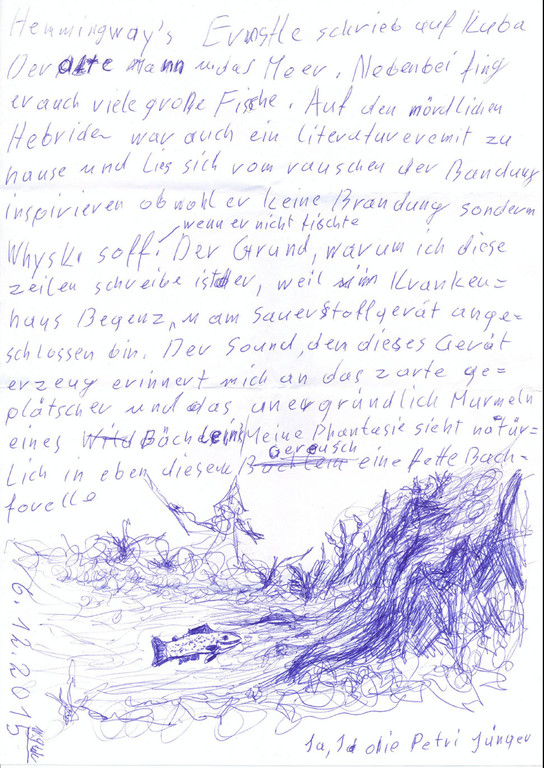 Hemmingway's Ernstle schrieb auf Kuba
Der alte Mann und das Meer. Nebenbei fing
er auch viele große Fische. Auf den nördlichen
Hebriden war auch ein Literatureremit zu
hause und lies sich vom rauschen der Bandung
inspirieren obwohl er keine Brandung sondern
wenn er nicht fischte
Whysky soff. Der Grund, warum ich diese
zeilen schreibe ist der, weil im Kranken=
haus Begenz, am Sauerstoffgerät ange=
schlossen bin. Der Sound, den dieses Gerät
erzeug erinnert mich an das zarte ge=
plätscher und das unergründlich Murmeln
eines Bächleins Meine Phantasie sieht natür-
Gereusch
lich in eben diesem Bächlein eine fette Bach-
forelle
6.12.2015
Ja, Ja die Petri Jünger